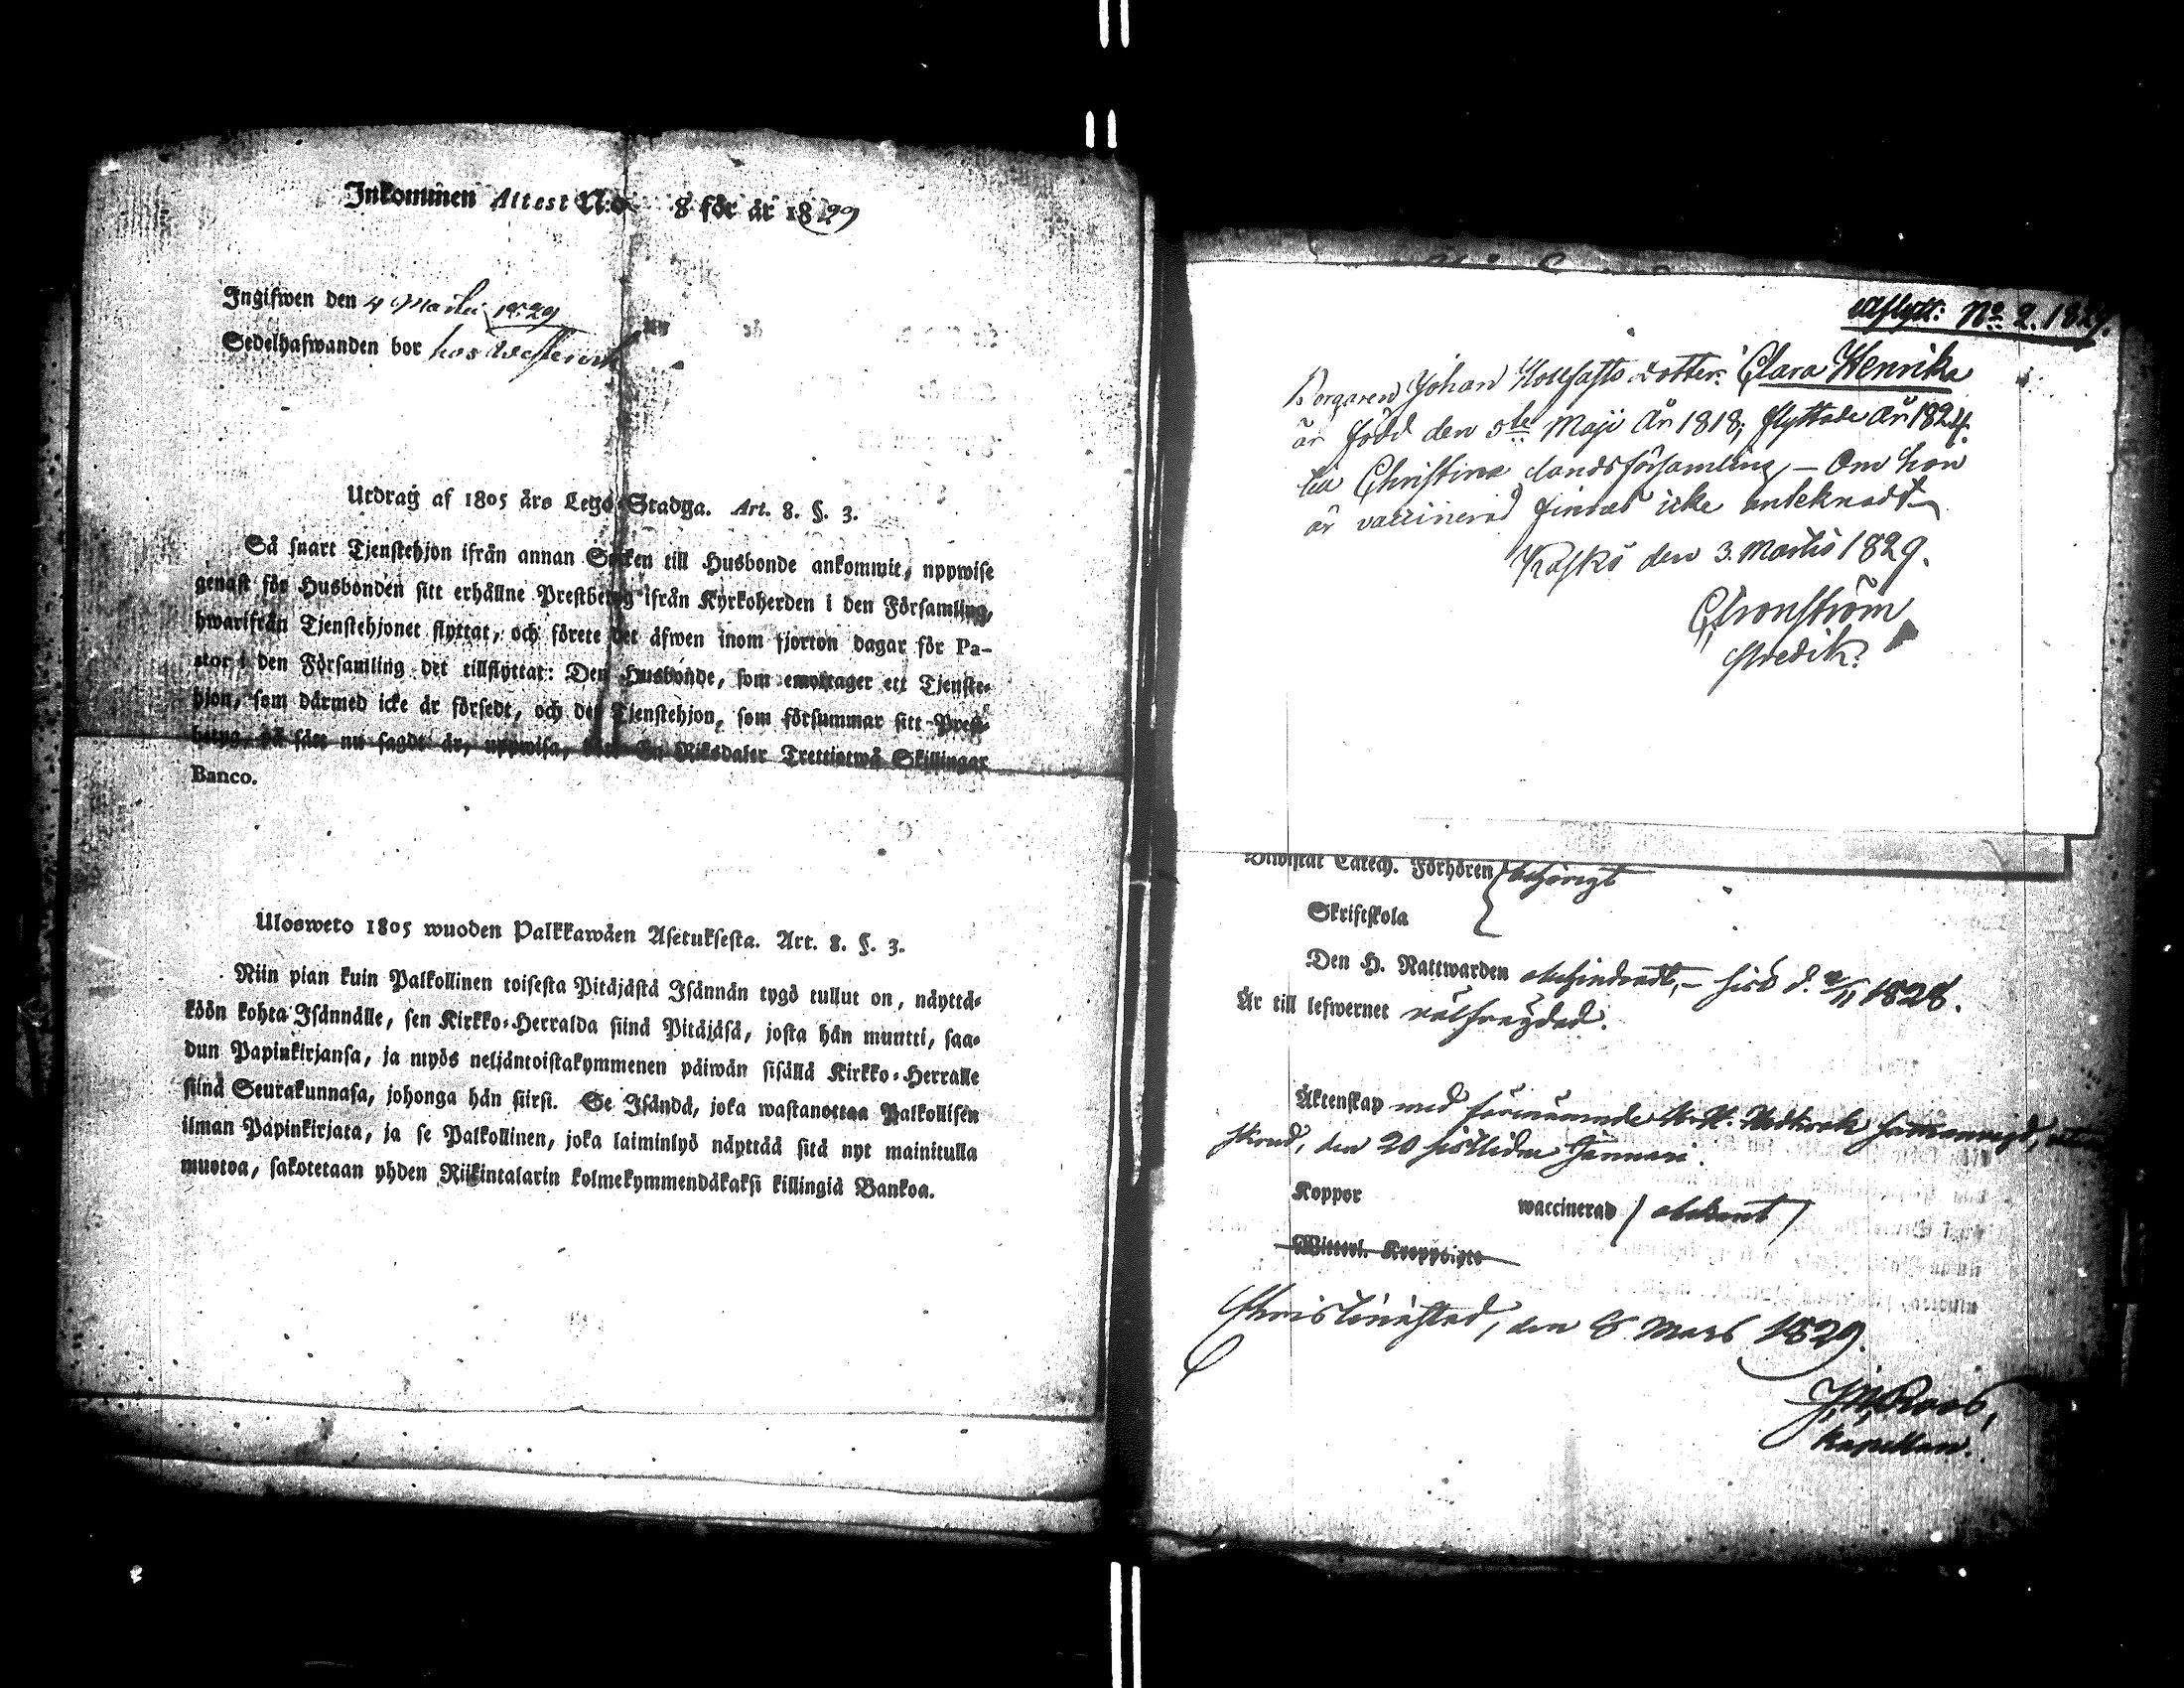 Inkommen Attest N:o 8 för år 1829
Ingifwen den 4 Martii 1829
Sedelhafwanden bor hos
Utdrag af 1805 års Lego-Stadga. Art. 8. §. 3.
Så snart Tjenstehjon ifrån annan Socken till Husbonde ankommit, uppwise
genast för Husbonden sitt erhållne Prestbetyg ifrån Kyrkoherden i den Församling,
hwarifrån Tjenstehjonet flyttat, och förete det äfwen inom fjorton dagar för Pa-
stor i den Församling det tillflyttat: Den Husbonde, som emottager ett Tjenste-
hjon, som därmed icke är försedt, och det Tjenstehjon, som försummar sitt Prest-
betyg, på sätt nu sagdt är, uppwisa, En Riksdaler Trettiotwå Skillingar
Banco.
Ulosweto 1805 wuoden Palkkawäen Asetuksesta. Art. 8. §. 3.
Niin pian kuin Palkollinen toisesta Pitäjästä Isännän tygö tullut on, näyttä-
köön kohta Isännälle, sen Kirkko-Herralda siinä Pitäjäsä, josta hän muutti, saa-
dun Papinkirjansa, ja myös neljäntoistakymmenen päiwän sisällä Kirkko-Herralle
siinä Seurakunnasa, johonga hän siirsi. Se Isändä, joka wastanottaa Palkollisen
ilman Papinkirjata, ja se Palkollinen, joka laiminlyö näyttää sitä nyt mainitulla
muotoa, sakotetaan yhden Riikintalarin kolmekymmendäkaksi killingiä Bankoa.
Afflytt: No 2. 1829.
Borgaren Johan dotter: Clara Henrika
är född den 5te Maji År 1818; flyttade År 1824
till Christina landsförsamling, – Om hon
är vaccinerad finnes icke anteknadt
Kaskö den 3. Martii 1829.
C. Cronström
Predik:
Biwistat Catech. Förhören behörigt
Skriftskola
Den H. Nattwarden obehindradt, – sist d. 2/11 1828.
Är till lefwernet välfräjdad.
Äktenskap med förenämnde
den 20 sistledne Januari.
Koppor waccinerad / obekant /
Witterl. Kroppslyte
Christinestad, den 8 Mars 1829.
J. M. Roos,
Kapellan.